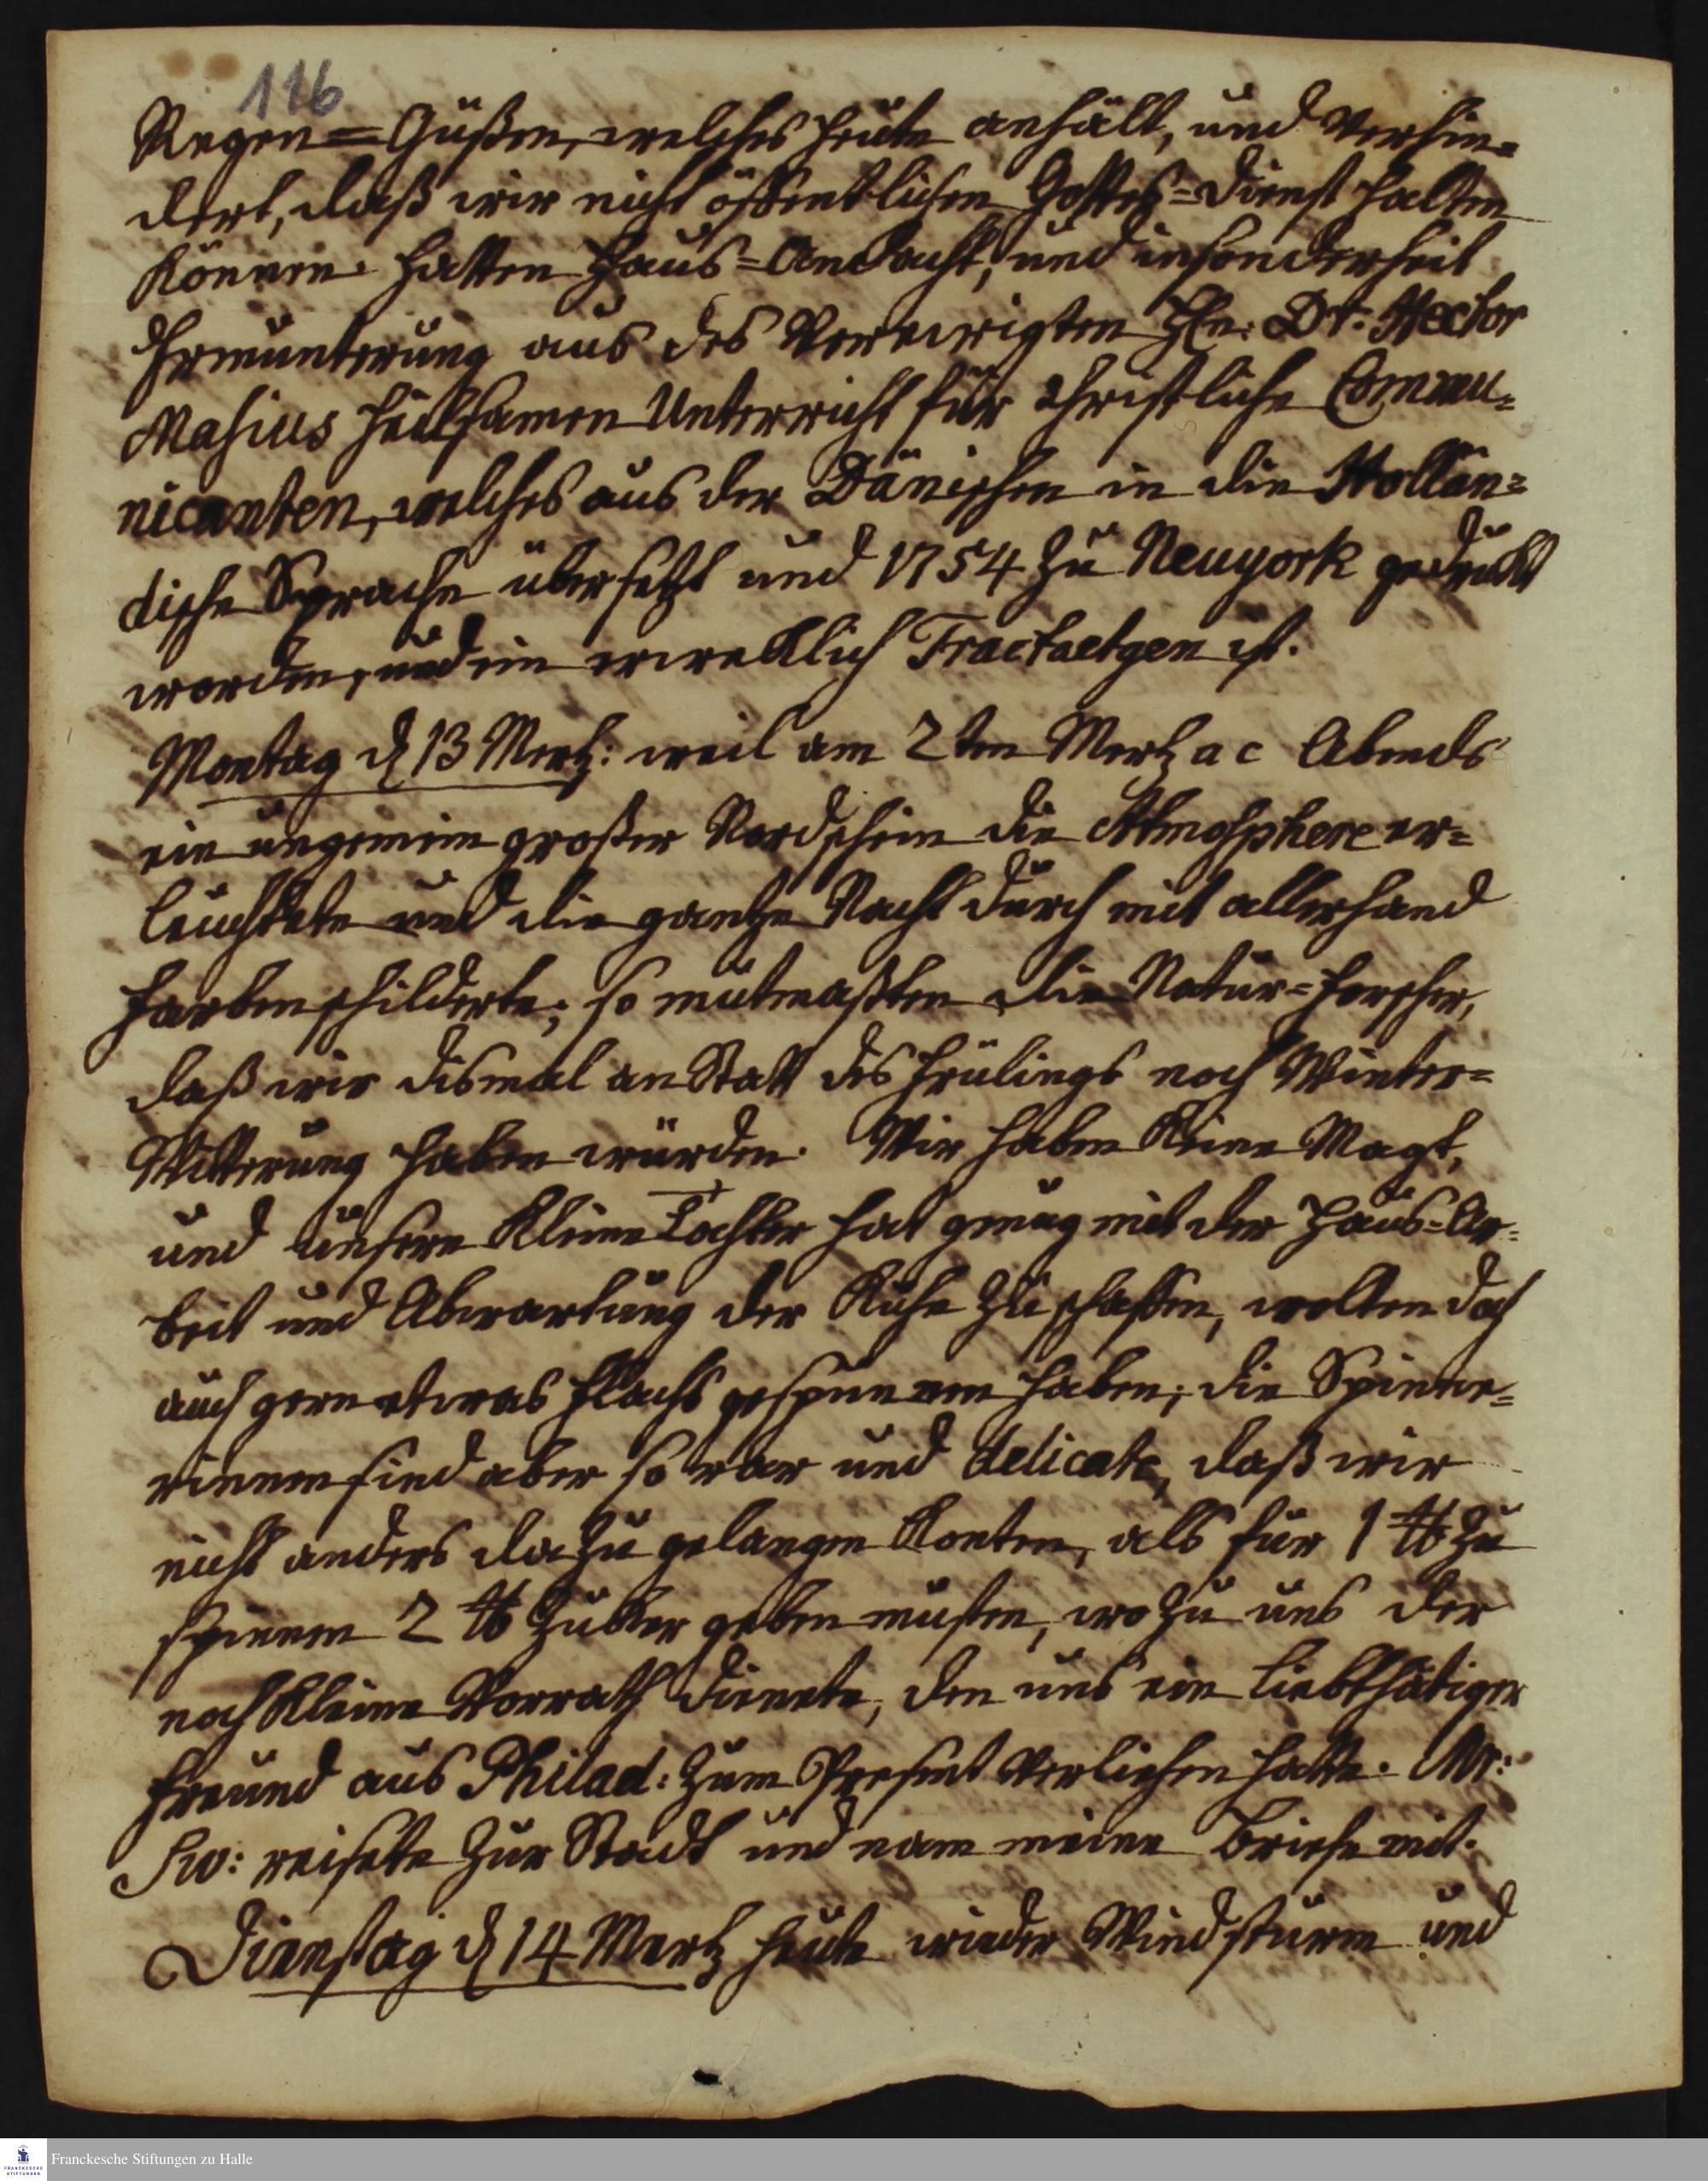 116
Regen=Güßen, welches heute anhält, und verhin=
dert, daß wir nicht öffentlichen Gottes=Dienst halten
können. Hatten Haus=Andacht, und insonderheit
Ermunterung aus des Verewigten HEn: Dr. Hector
Masius heilsamen Unterricht für Christliche Commu=
nicanten, welches aus der Dänischen in die Hollän=
dische Sprache übersetzt und 1754 zu Neuyork gedruckt
worden, und ein erwecklich Tractaetgen ist.
Montag d 13 Mertz: weil am 2ten Mertz a c Abends
ein ungemein großer Nordschein die Atmosphere er=
leuchtete und die gantze Nacht durch mit allerhand
Farben schilderte; so mutmaßten die Natur=Forscher,
daß wir dismal an Statt des Frülings noch Winter=
Witterung haben würden. Wir haben keine Magt,
und unsere kleine Tochter hat genug mit der Haus=Ar=
beit und Abwartung der Kühe zu schaffen, wolten doch
auch gern etwas Flachs gespunnen haben; die Spinne=
rinnen sind aber so rar und delicate, daß wir
nicht anders dazu gelangen konten, als für 1 ℔ zu
spinnen 2 ℔ Zucker geben musten, wozu uns der
noch kleine Vorrath dienete, den uns ein liebthätiger
Freund aus Philad: zum Present verliehen hatte. Mr:
Sw: reisete zur Stadt und nam meine Briefe mit.
Dienstag d 14 Mertz heute wieder Windsturm und
Franckesche Stiftungen zu Halle
FRANCKESCHE
STIFTUNGEN